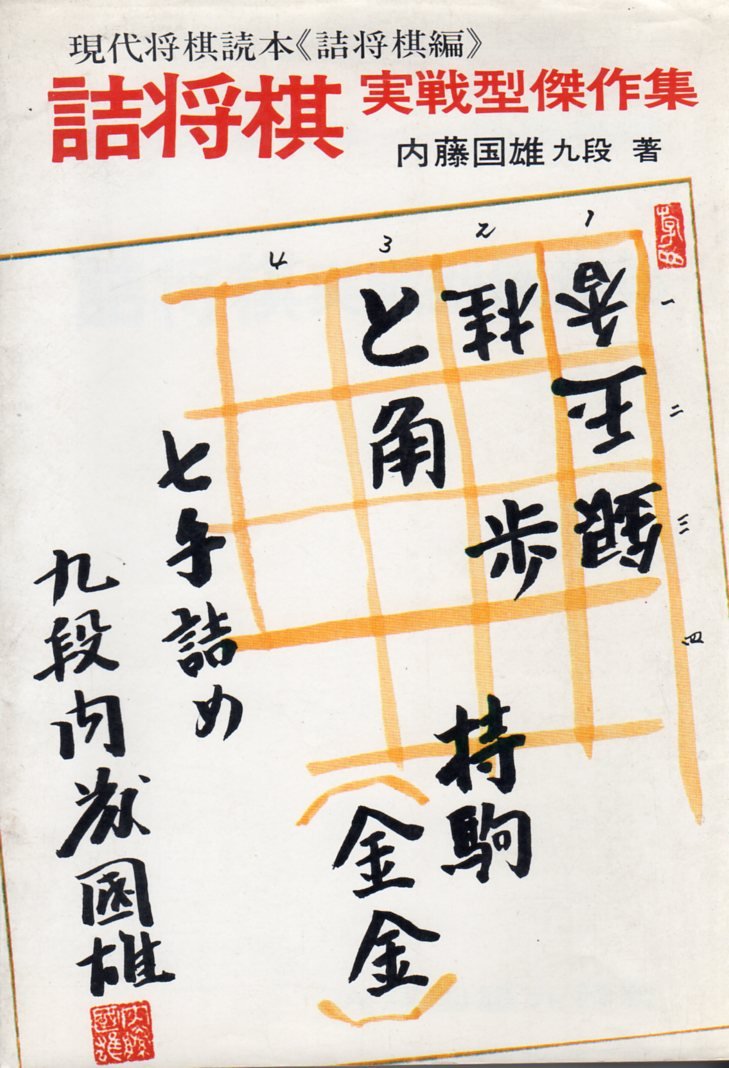 現代将棋読本《詰将棋編》
詰将棋 実戦型傑作集
内藤国雄九段 著
4 3 2 1
と 桂 香
一
角 玉
二
歩 銀
三
四
持駒
金金
七手詰め
九段内藤國雄